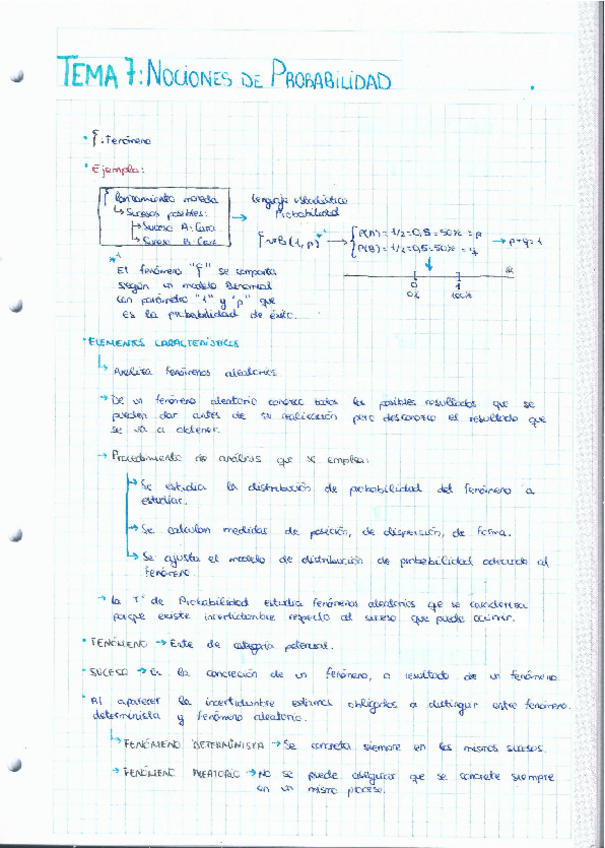 TEMA 7: NOCIONES DE PROBABILIDAD
ξ: Fenómeno
Ejemplo:
ξ Lanzamiento moneda
↳ Sucesos posibles:
→ Suceso A: Cara
↳ Suceso B: Cruz
→ Lenguaje estadístico
Probabilidad
ξ ~ B(1,p) *¹ → P(A) = 1/2 = 0,5 = 50% = p
P(B) = 1/2 = 0,5 = 50% = q
→ p+q=1
0 1
0% 100%
*¹
El fenómeno "ξ" se comporta
según un modelo Binomial
con parámetro "1" y "p" que
es la probabilidad de éxito.
ELEMENTOS CARACTERÍSTICOS
↳ Analiza fenómenos aleatorios.
→ De un fenómeno aleatorio conozco todos los posibles resultados que se
pueden dar antes de su realización pero desconozco el resultado que
se va a obtener.
→ Procedimiento de análisis que se emplea:
→ Se estudia la distribución de probabilidad del fenómeno a
estudiar.
→ Se calculan medidas de posición, de dispersión, de forma.
↳ Se ajusta el modelo de distribución de probabilidad adecuado al
fenómeno.
→ La Tª de Probabilidad estudia fenómenos aleatorios que se caracteriza
porque existe incertidumbre respecto al suceso que puede ocurrir.
FENÓMENO → Ente de categoría potencial.
SUCESO → Es la concreción de un fenómeno, o resultado de un fenómeno.
Al aparecer la incertidumbre estamos obligados a distinguir entre fenómeno
determinista y fenómeno aleatorio.
↳ FENÓMENO DETERMINISTA → Se concreta siempre en los mismos sucesos.
→ FENÓMENO ALEATORIO → No se puede asegurar que se concrete siempre
en un mismo proceso.